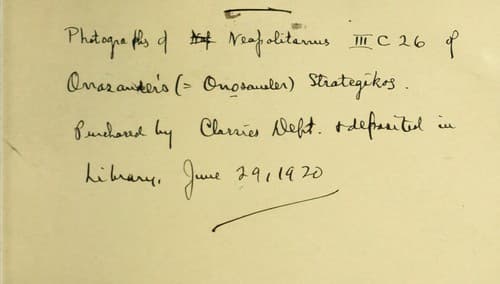 Photographs of Neapolitanus III C 26 of
Onasander's (= Onosander) Strategikos.
Purchased by Classics Dept. & deposited in
Library, June 29, 1920